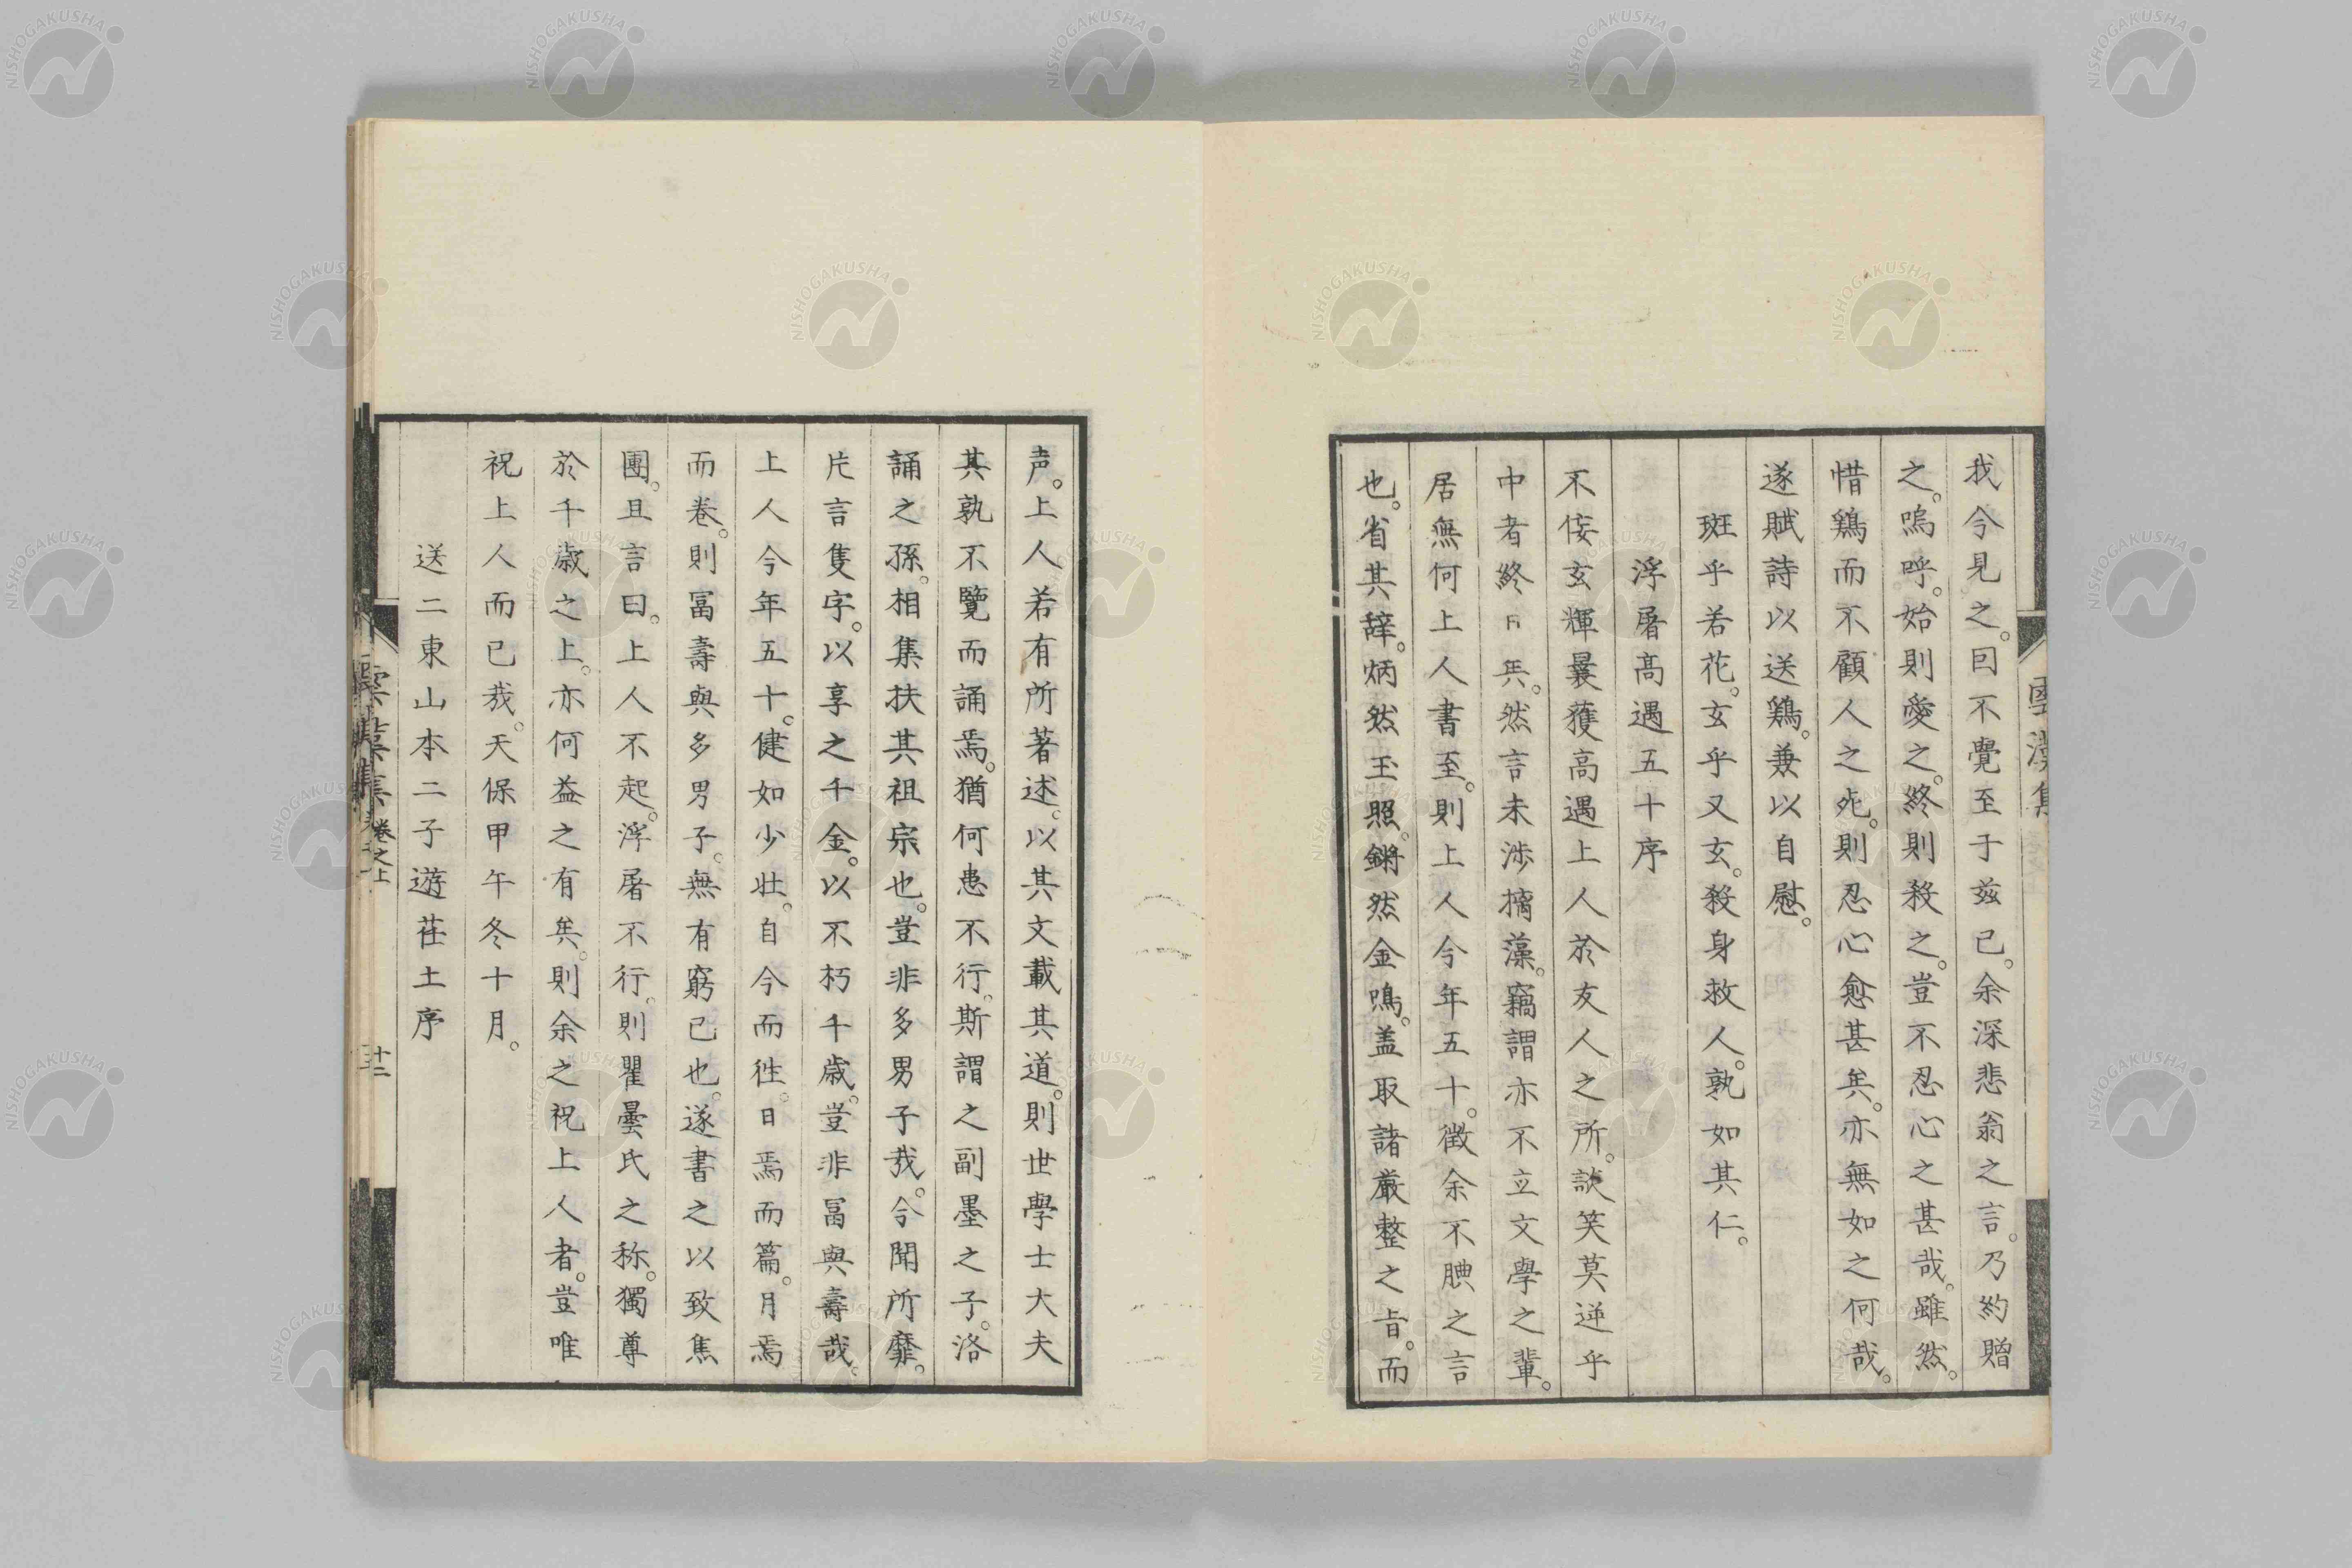 我今見之。囙不覺至于茲已。余深悲翁之言。乃約贈
之。嗚呼。始則愛之。終則殺之。豈不忍心之甚哉。雖然。
惜鷄而不顧人之死。則忍心愈甚矣。亦無如之何哉。
遂賦詩以送鷄。兼以自慰。
斑乎若花。玄乎又玄。殺身救人。孰如其仁。
浮屠高遇五十序
不佞玄輝曩獲高遇上人於友人之所。談笑莫逆乎
中者終日矣。然言未涉摛藻。竊謂亦不立文學之輩。
居無何上人書至。則上人今年五十。徵余不腆之言
也。省其辞。炳然玉照。鏘然金鳴。盖取諸嚴整之旨。而
声。上人若有所著述。以其文載其道。則世學士大夫
其孰不覽而誦焉。猶何患不行。斯謂之副墨之子。洛
誦之孫。相集扶其祖宗也。豈非多男子哉。今聞所靡。
片言隻字。以享之千金。以不朽千歳。豈非冨與壽哉。
上人今年五十。健如少壮。自今而徃。日焉而篇。月焉
而卷。則冨壽與多男子。無有窮已也。遂書之以致焦
團。且言曰。上人不起。浮屠不行。則瞿曇氏之称。獨尊
於千歳之上。亦何益之有矣。則余之祝上人者。豈唯
祝上人而已哉。天保甲午冬十月。
送二東山本二子遊荏土序
雲漢集
卷之上
十二
NISHOGAKUSHA